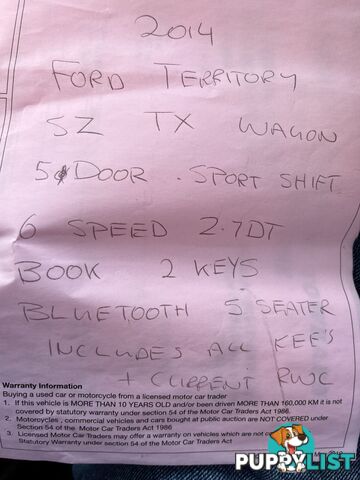 2014
FORD TERRITORY
SZ TX WAGON
5 DOOR . SPORT SHIFT
6 SPEED 2.7DT
BOOK 2 KEYS
BLUETOOTH 5 SEATER
INCLUDES ALL KEE'S
+ CURRENT RWC
Warranty Information
Buying a used car or motorcycle from a licensed motor car trader
1. If this vehicle is MORE THAN 10 YEARS OLD and/or been driven MORE THAN 160,000 KM it is not
covered by statutory warranty under section 54 of the Motor Car Traders Act 1986.
2. Motorcycles, commercial vehicles and cars bought at public auction are NOT COVERED under
Section 54 of the Motor Car Traders Act 1986
3. Licensed Motor Car Traders may offer a warranty on vehicles which are not co
Statutory Warranty under section 54 of the Motor Car Traders Act
PUPPYLIST